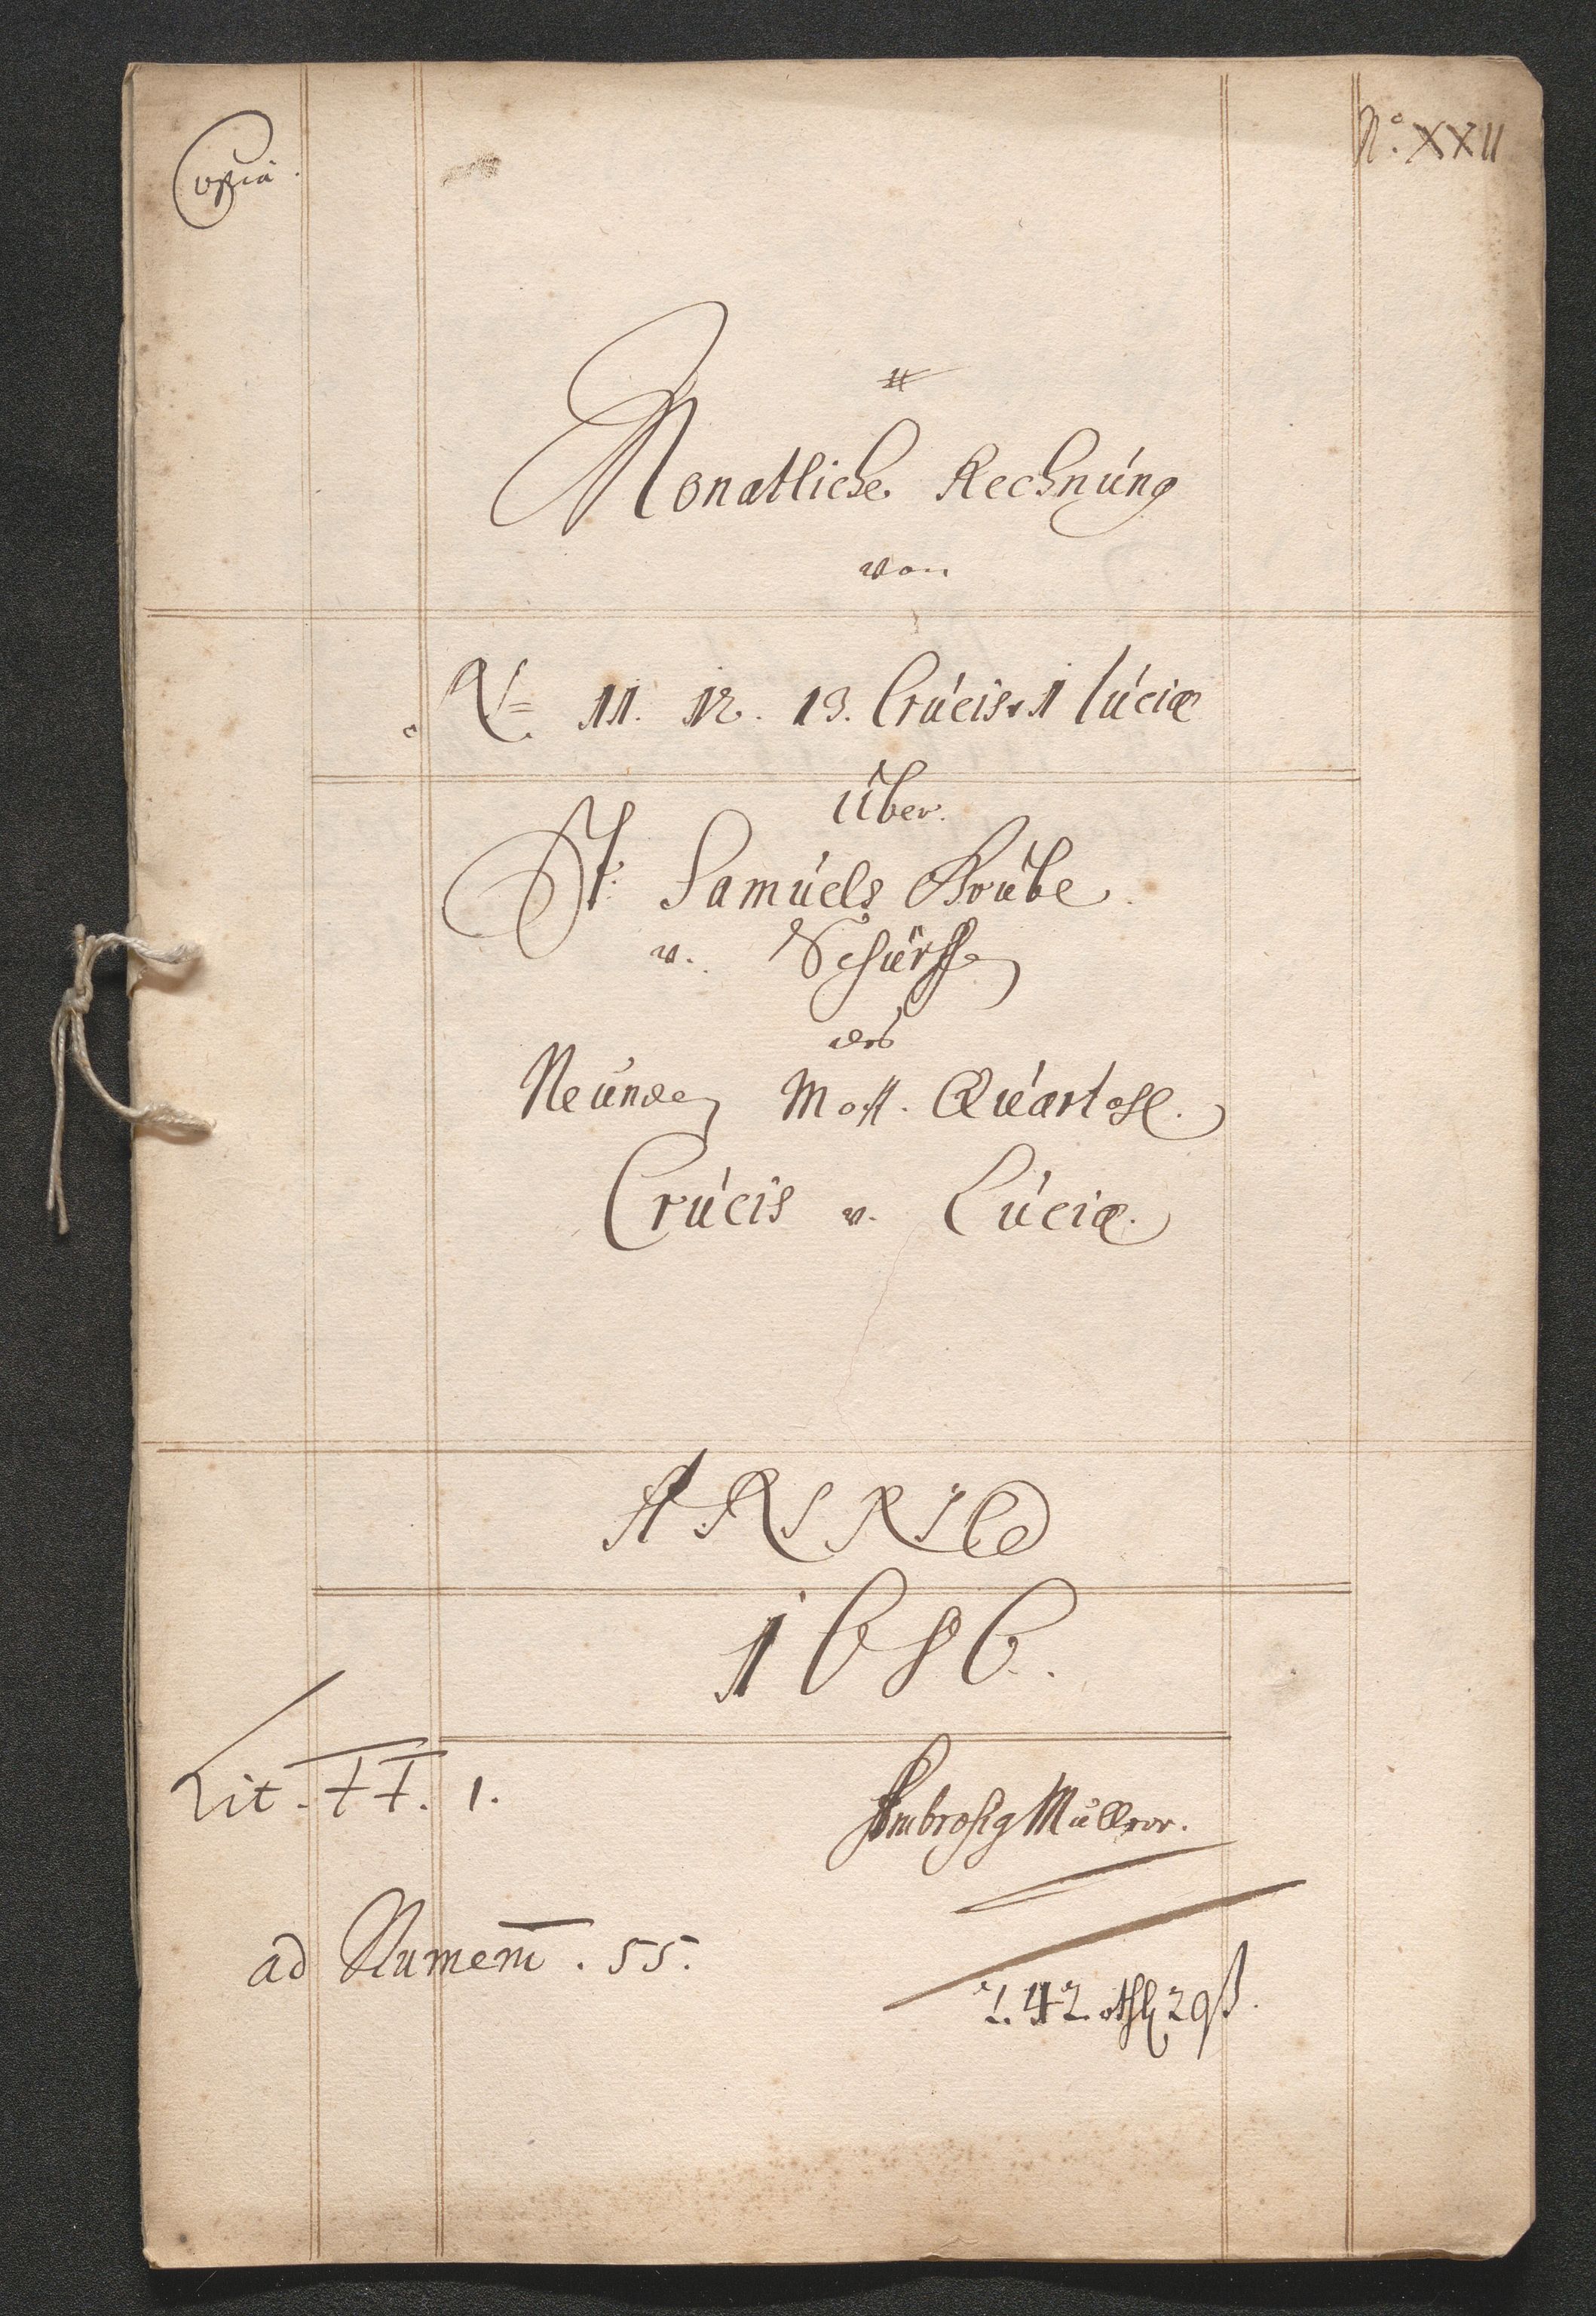 Copia.
No. XXII
Monatliche Rechnung
von
No. 11. 12. 13. Crucis v 1 Luciæ
über
St. Samuels Grube
v. Schürffen
des
Neunden Mon. Quartahl.
Crucis v. Luciæ.
ANNO
1686.
Lit. FF. 1.
Ambrosig Müller.
ad Numeru. 55.
242 29